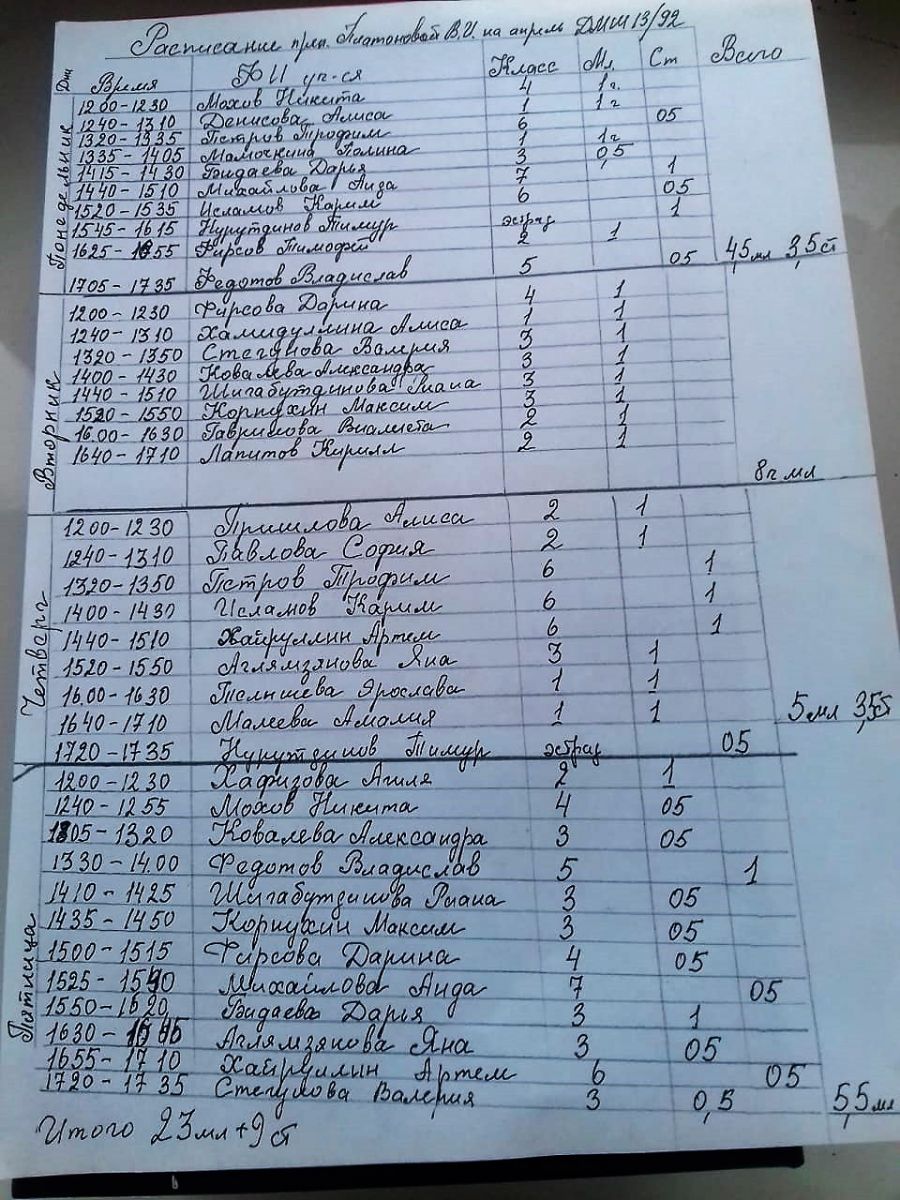 Расписание преп. Платоновой В.И. на апрель ДМШ 13/92
Дни Время Ф И уч-ся Класс Мл. Ст Всего
Понедельник
1200-1230 Мохов Никита 4 1ч.
1240-1310 Денисова Алиса 1 1ч
1320-1335 Петров Трофим 6 05
1335-1405 Мамочкина Полина 1 1ч
1415-1430 Видаева Дарья 3 05
1440-1510 Михайлова Аида 7 1
1520-1535 Исламов Карим 6 05
1545-1615 Нурутдинов Тимур эстрад 1
1625-1655 Фирсов Тимофей 2 1
1705-1735 Федотов Владислав 5 05 4,5мл 3,5ст
Вторник
1200-1230 Фирсова Дарина 4 1
1240-1310 Хамидуллина Алиса 1 1
1320-1350 Стегунова Валерия 3 1
1400-1430 Ковалева Александра 3 1
1440-1510 Шигабутдинова Риана 3 1
1520-1550 Корнухин Максим 3 1
16.00-1630 Гаврилова Виалетта 2 1
1640-1710 Лапитов Кирилл 2 1
8ч мл
Четверг
1200-1230 Пришлова Алиса 2 1
1240-1310 Павлова София 2 1
1320-1350 Петров Трофим 6 1
1400-1430 Исламов Карим 6 1
1440-1510 Хайруллин Артем 6 1
1520-1550 Аглямзянова Яна 3 1
16.00-1630 Телишева Ярослава 1 1
1640-1710 Малеева Амалия 1 1 5мл 3,5ст
1720-1735 Нурутдинов Тимур эстрад 05
Пятница
1200-1230 Хафизова Агиля 2 1
1240-1255 Мохов Никита 4 05
1305-1320 Ковалева Александра 3 05
1330-14.00 Федотов Владислав 5 1
1410-1425 Шигабутдинова Риана 3 05
1435-1450 Корнухин Максим 3 05
1500-1515 Фирсова Дарина 4 05
1525-1540 Михайлова Аида 7 05
1550-1620 Видаева Дарья 3 1
1630-1645 Аглямзянова Яна 3 05
1655-1710 Хайруллин Артем 6 05
1720-1735 Стегунова Валерия 3 0,5 5,5мл
Итого 23мл+9ст